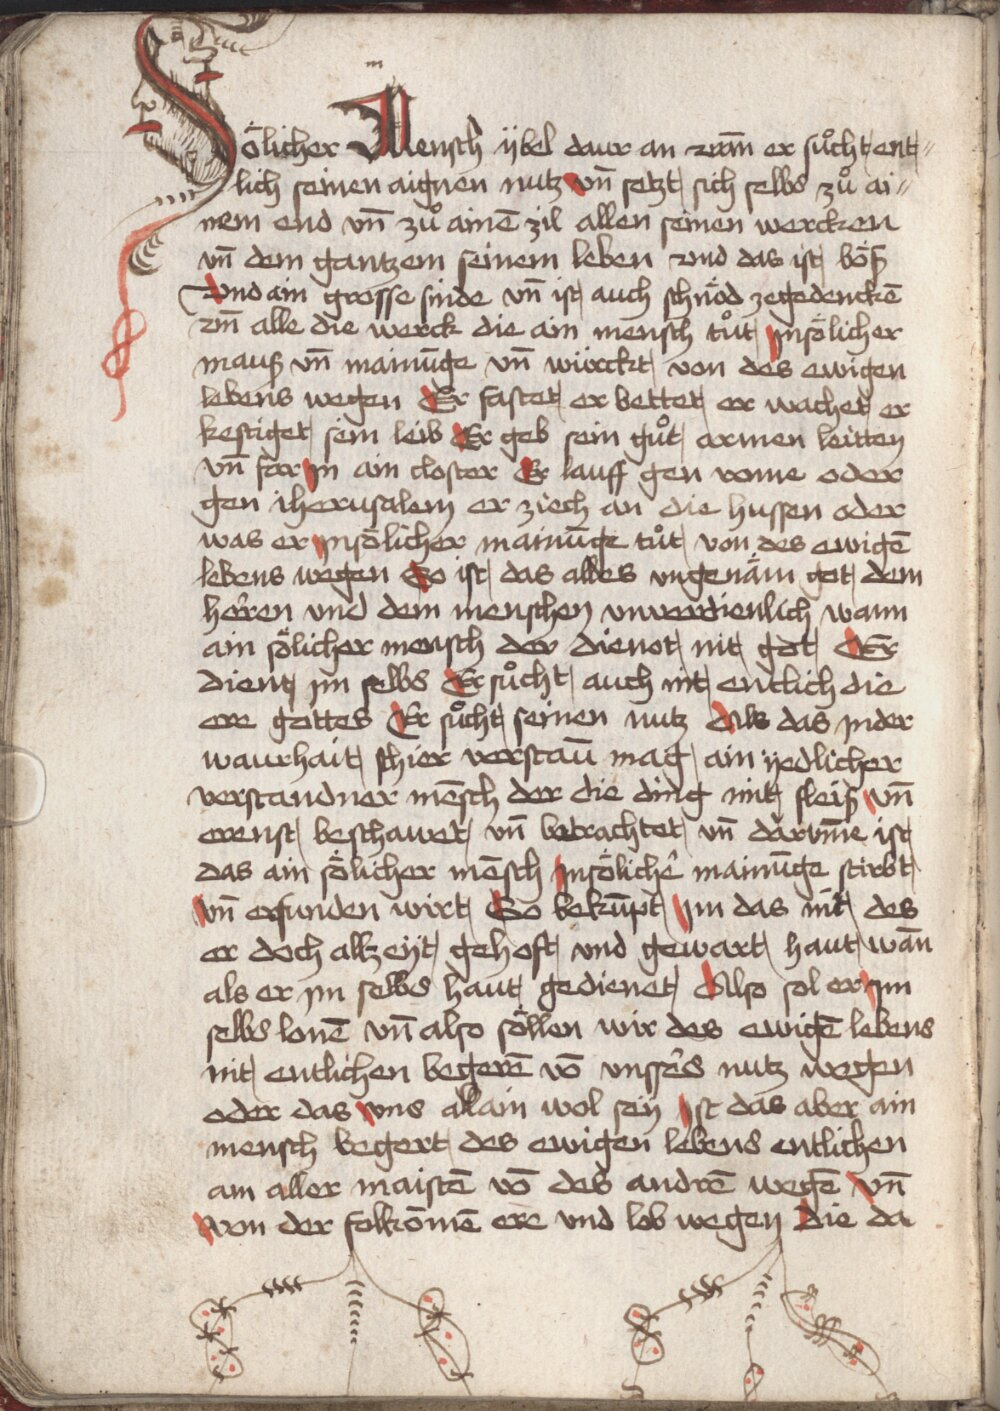 Sölicher Mensch ijbel daur an wan̄ er sůcht ent〃
lich seinen aignen nutz vn̄ setzt sich selbs zů ai〃
nem end vn̄ zů ainē zil allen seinen wercken
vn̄ dem gantzem seinem leben vnd das ist böß
Vnd ain grosse sinde vn̄ ist auch schnöd zegedenckē
wn̄ alle die werck die ain mensch tůt jnsölicher
mauß vn̄ mainūge vn̄ würckt von des ewigen
lebens wegen Er fastet er bettet er wachet er
kestiget sein leib Er geb sein gůt armen leitten
vn̄ far jn ain closter Er lauff gen rome oder
gen iherusalem er ziech an die hussen oder
was er jnsölicher mainūge tůt von des ewigē
lebens wegen So ist das alles vngenäm got dem
herren vnd dem menschen vnverdienlich wann
ain sölicher mensch der dienot nit got Er
dient jm selbs Er sůcht auch nit entlich die
ere gottes Er sůcht seinen nutz Als das jnder
waurhait schier verstaū mag ain yedlicher
verstandner mēsch der die ding mit fleiß vn̄
ernst beschawet vn̄ betrachtet vn̄ darvm̄e ist
das ain sölicher mēsch jnsölicher mainūge stirbt
vn̄ erfunden wirt So bekūpt jm das nit des
er doch allzeyt gehoft vnd gewart haut wān
als er jm selbs haut gedienet Also sol er jm
selbs lonē vn̄ also söllen wir des ewigē lebens
nit entlichen begerē vō vnssers nutz wegen
oder das vns allain wol sey Ist das aber ain
mensch begert des ewigen lebens entlichen
am aller maistē vō des andrē wegē vn̄
von der folkōmē ere vnd lob wegen die da